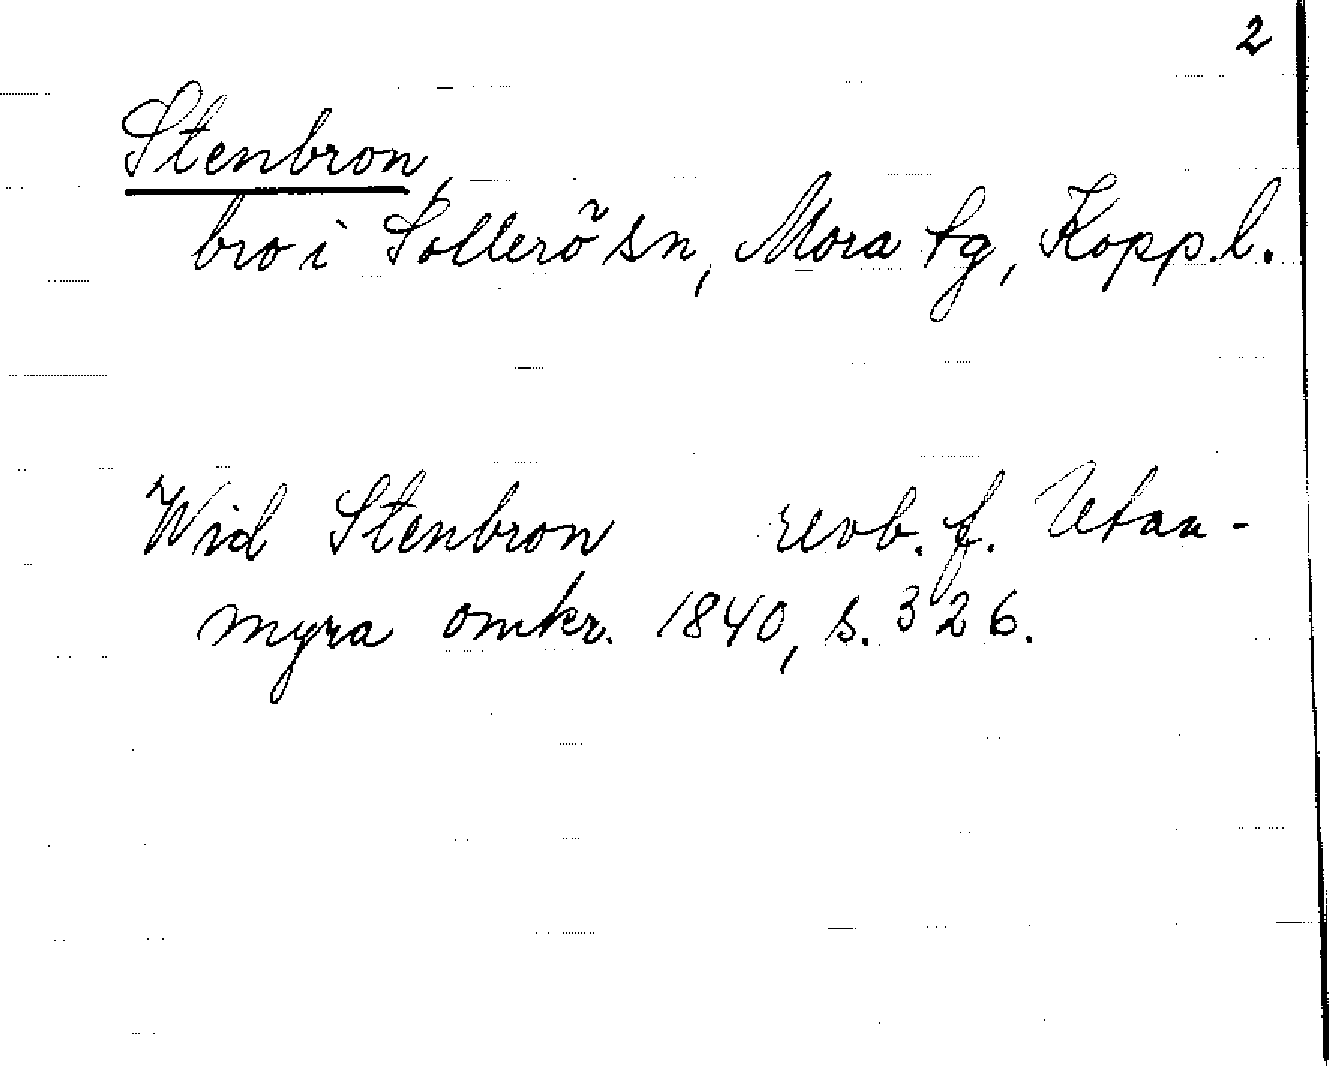 2
Stenbron,
bro i Sollerö sn, Mora tg, Kopp.l.
Wid Stenbron revb. f. Utan-
myra omkr. 1840, s. 326.